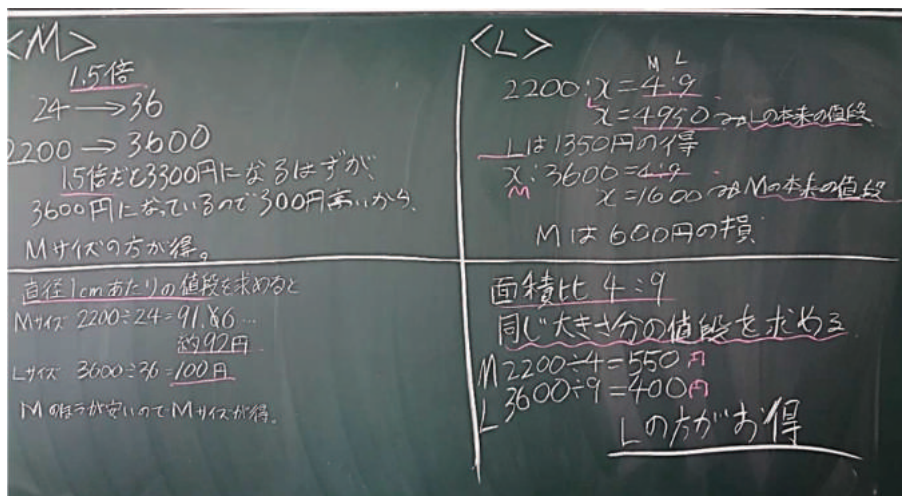 <M>
1.5倍
24→36
2200→3600
1.5倍だと3300円になるはずが、
3600円になっているので300円高いから、
Mサイズの方が得。
直径1cmあたりの値段を求めると
Mサイズ 2200÷24=91.66…
約92円
Lサイズ 3600÷36=100円
Mのほうが安いのでMサイズが得。
<L>
M L
2200:x=4:9
L
x=4950 Lの本来の値段
Lは1350円の得
x:3600=4:9
M
x=1600 Mの本来の値段
Mは600円の損
面積比 4:9
同じ大きさ分の値段を求める
M 2200÷4=550円
L 3600÷9=400円
Lの方がお得